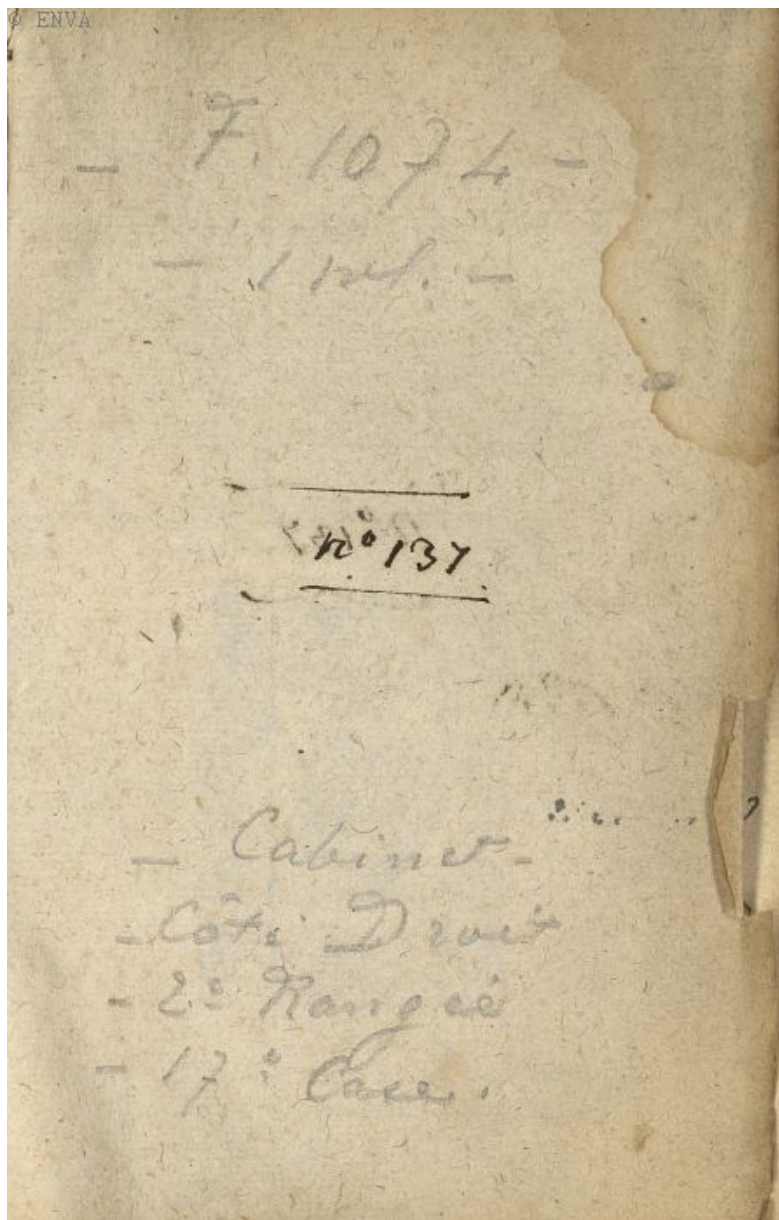 © ENVA
- F. 1074 -
- 1 vol. -
n° 137.
- Cabinet -
- Côté Droit
- 2e Rangée
- 17e Case.